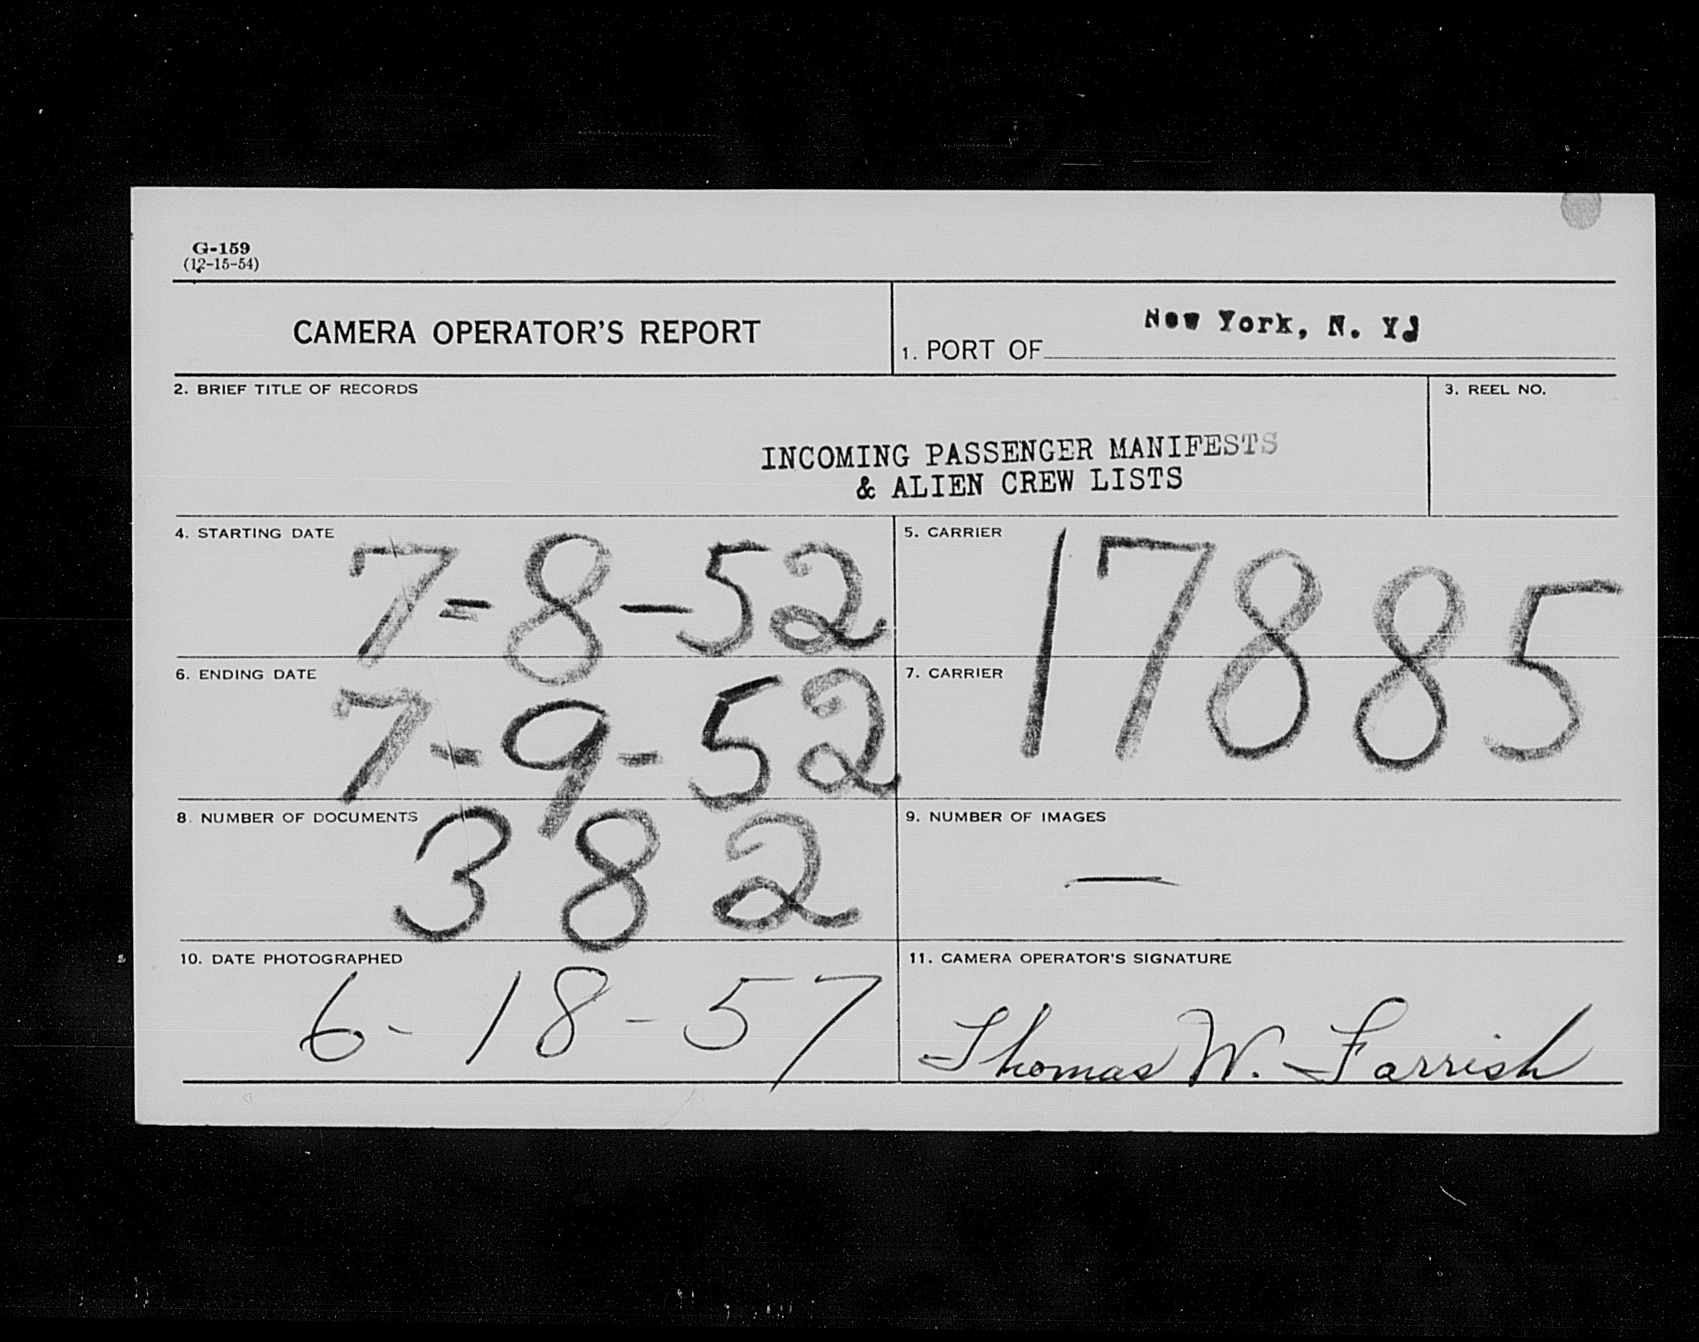 G-159
(12-15-54)
CAMERA OPERATOR'S REPORT
New York, N. Y.
1. PORT OF
2. BRIEF TITLE OF RECORDS
3. REEL NO.
INCOMING PASSENGER MANIFESTS
& ALIEN CREW LISTS
4. STARTING DATE
7-8-52
5. CARRIER
17885
6. ENDING DATE
7-9-52
7. CARRIER
8. NUMBER OF DOCUMENTS
382
9. NUMBER OF IMAGES
—
10. DATE PHOTOGRAPHED
6-18-57
11. CAMERA OPERATOR'S SIGNATURE
Thomas W. Farrish